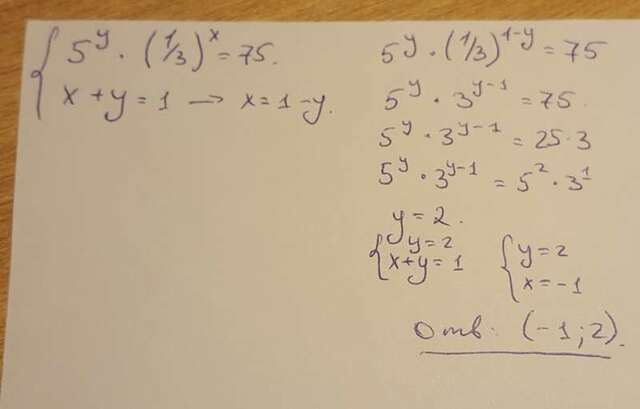 5^y · (1/3)^x = 75.
x + y = 1 → x = 1 - y.
5^y · (1/3)^{1-y} = 75
5^y · 3^{y-1} = 75.
5^y · 3^{y-1} = 25·3
5^y · 3^{y-1} = 5^2 · 3^1
y = 2.
y = 2
x + y = 1
y = 2
x = -1
Отв: (-1; 2).